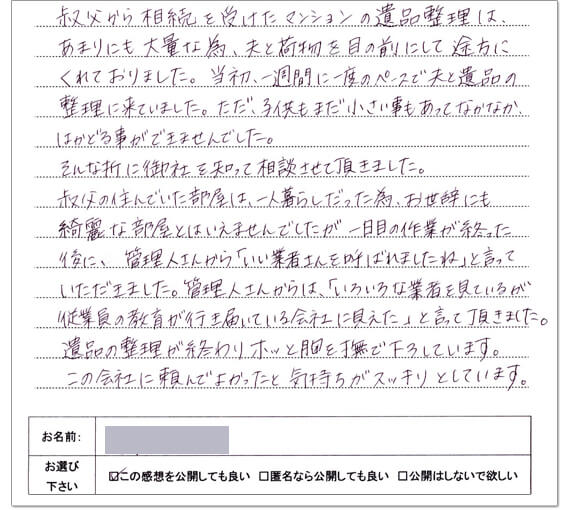 叔父から相続を受けたマンションの遺品整理は、
あまりにも大量な為、夫と荷物を目の前にして途方に
くれておりました。当初、一週間に一度のペースで夫と遺品の
整理に来ていました。ただ、子供もまだ小さい事もあってなかなか、
はかどる事ができませんでした。
そんな折に御社を知って相談させて頂きました。
叔父の住んでいた部屋は、一人暮らしだった為、お世辞にも
綺麗な部屋とはいえませんでしたが一日目の作業が終った
後に、管理人さんから「いい業者さんを呼ばれましたね」と言って
いただきました。管理人さんからは、「いろいろな業者を見ているが
従業員の教育が行き届いている会社に見えた」と言って頂きました。
遺品の整理が終わりホッと胸を撫で下ろしています。
この会社に頼んでよかったと気持ちがスッキリとしています。
お名前:
お選び
下さい
☑この感想を公開しても良い □匿名なら公開しても良い □公開はしないで欲しい